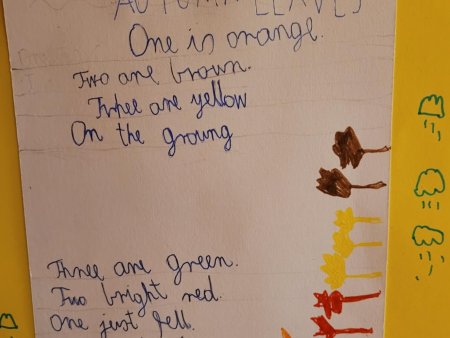 AUTUMN LEAVES
One is orange.
Two are brown.
Three are yellow
On the groung
Three are green.
Two bright red.
One just fell.